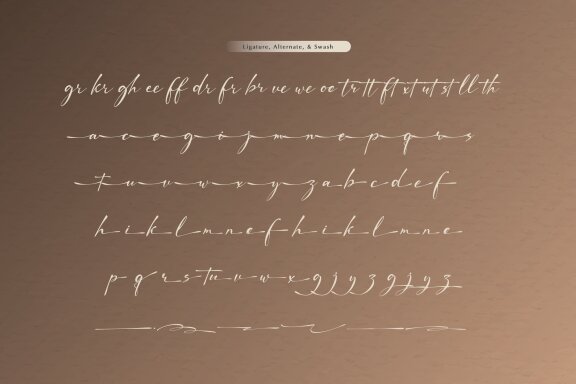 Ligature, Alternate, & Swash
gr kr gh ee ff dr fr br ve we oo tr tt ft xt ut st ll th
a c e g o j m n e p q r s
t u v w x y z a b c d e f
h i k l m n e f h i k l m n e
p q r s t u v w x g j y z g j y z